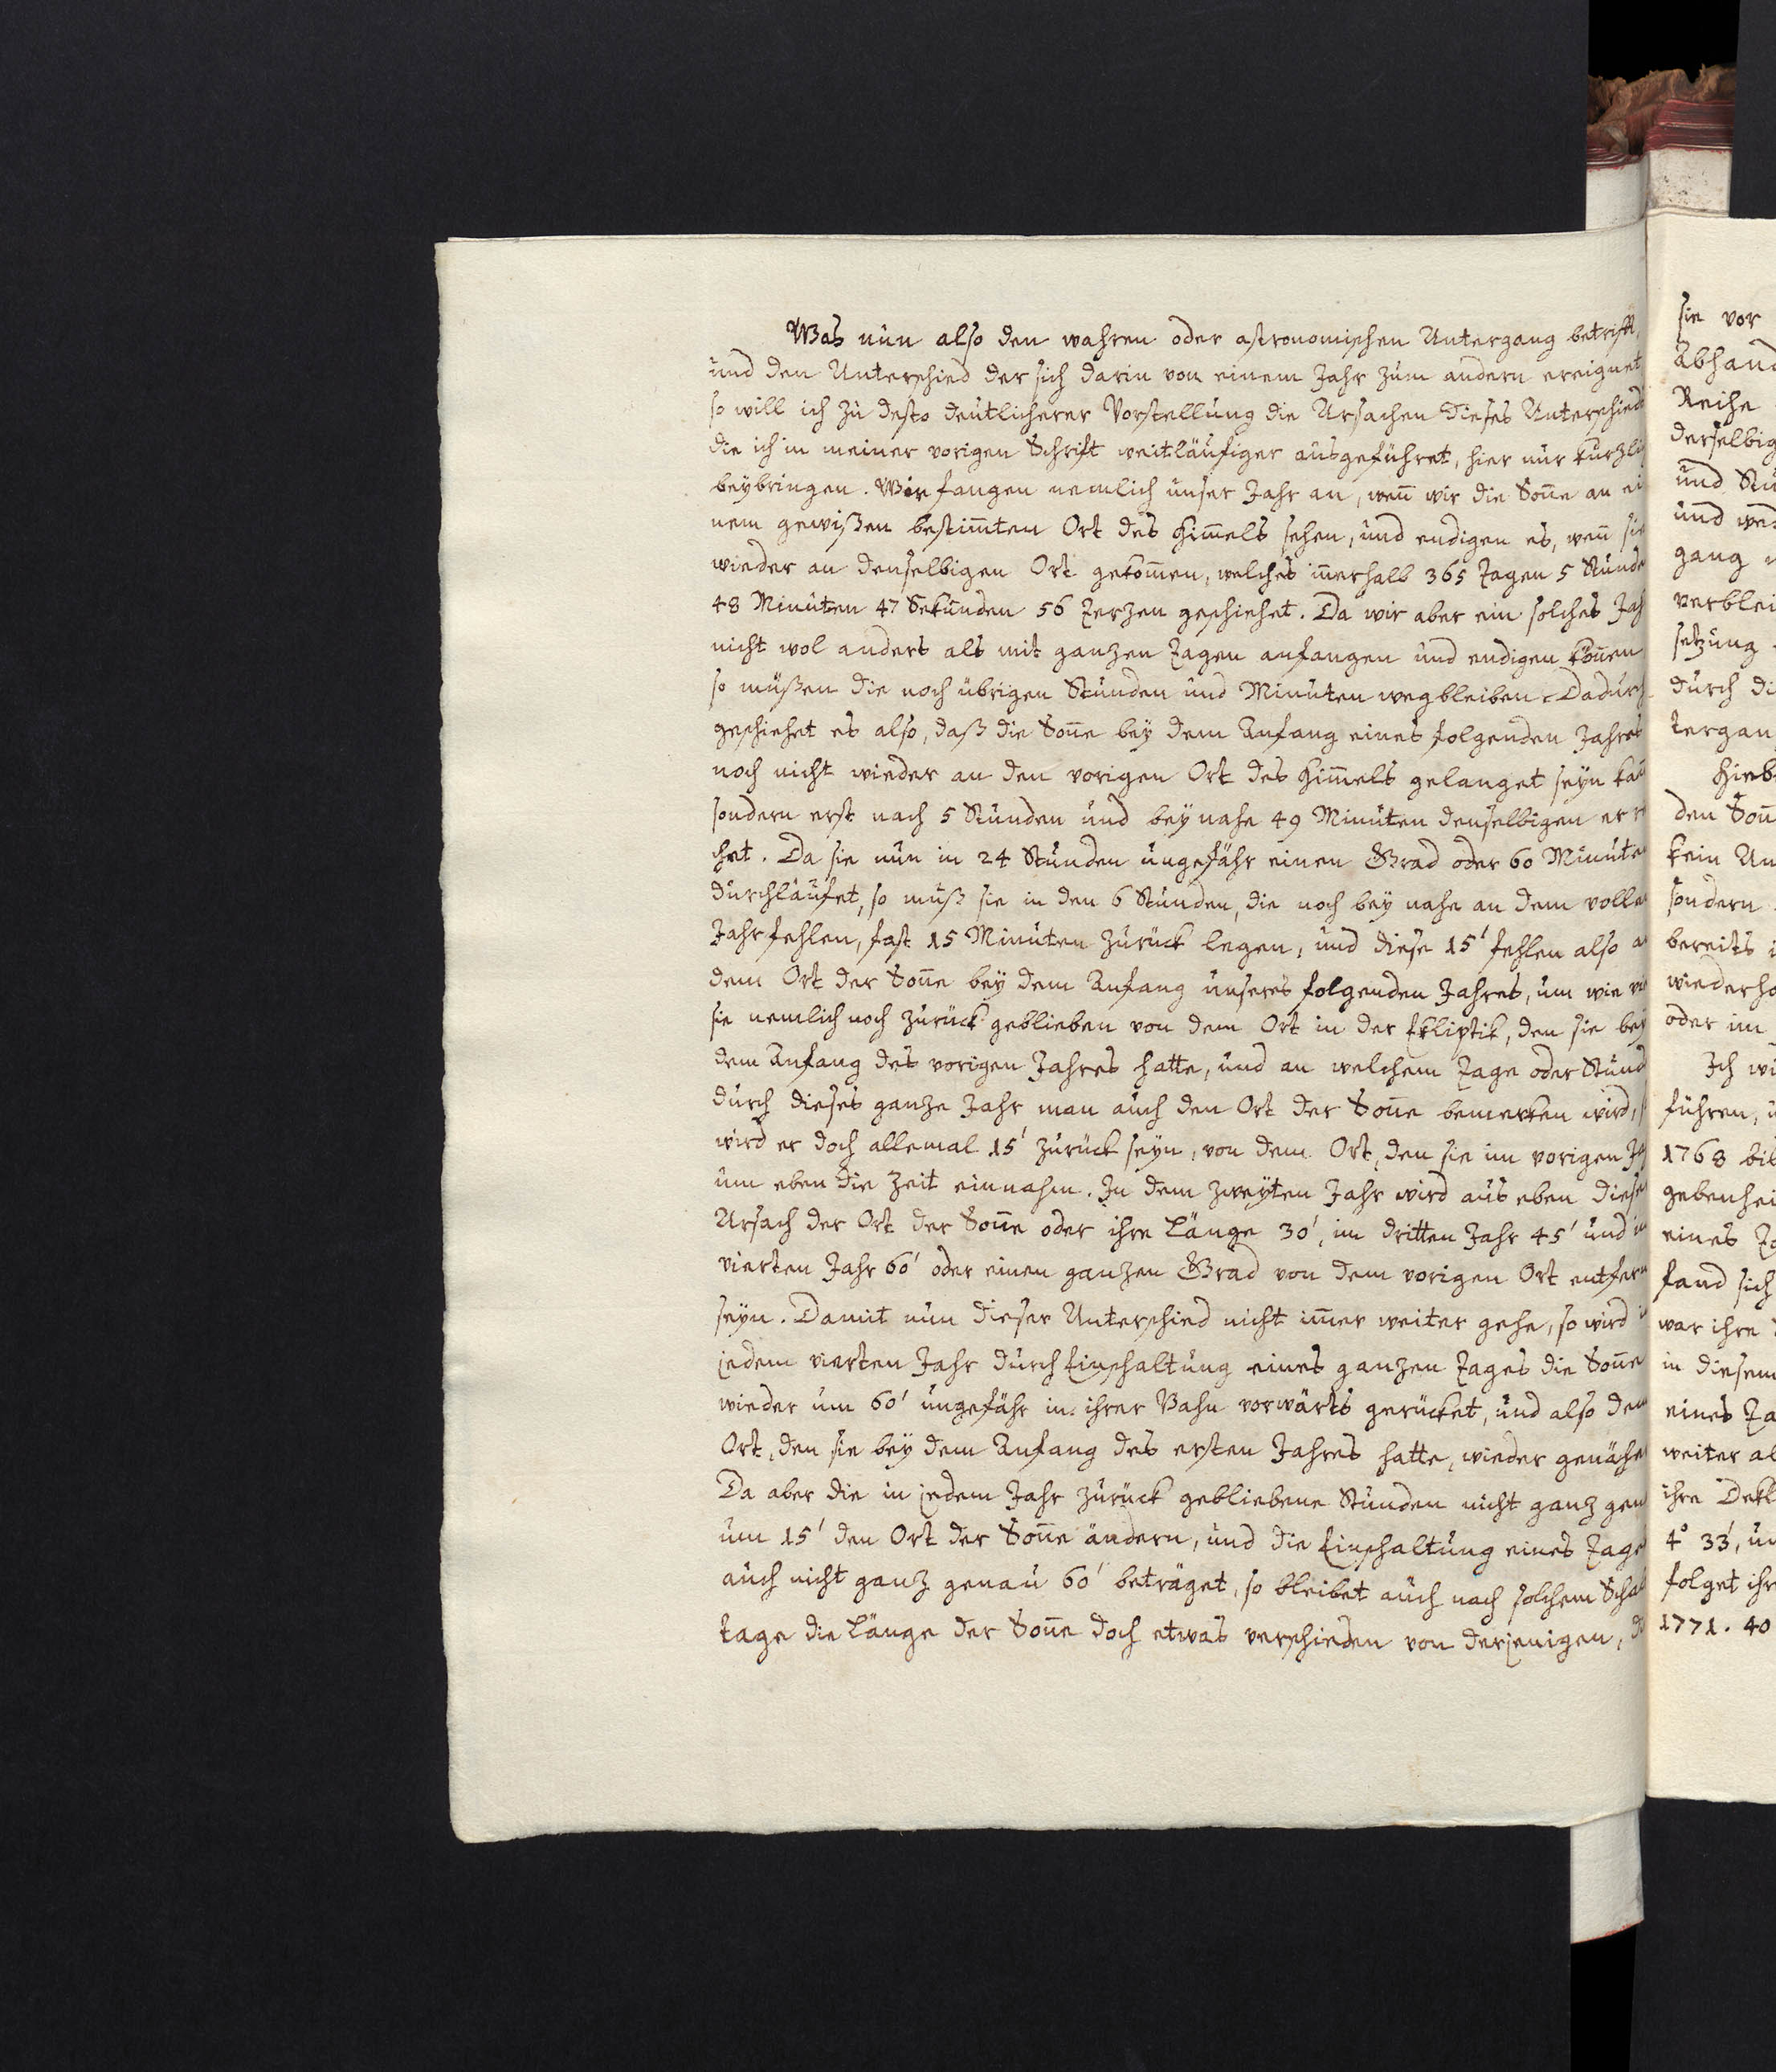 Was nun also den wahren oder astronomischen Untergang betrifft,
und den Unterschied der sich darin von einem Jahr zum andern ereignet
so will ich zu desto deutlicherer Vorstellung die Ursachen dieses Unterschied
die ich in meiner vorigen Schrift weitläufiger ausgeführet, hier nur kurzlich
beybringen. Wir fangen nemlich unser Jahr an, wen̄ wir die Son̄e an ei
nem gewißen bestim̄ten Ort des Him̄els sehen, und endigen es, wen̄ sie
wieder an denselbigen Ort gekom̄en, welches in̄erhalb 365 Tagen 5 Stunde
48 Minuten 47 Sekunden 56 Terzen geschiehet. Da wir aber ein solches Jah
nicht wol anders als mit ganzen Tagen anfangen und endigen kön̄en
so müßen die noch übrigen Stunden und Minuten wegbleiben. Dadurch
geschiehet es also, daß die Son̄e bey dem Anfang eines folgenden Jahres
noch nicht wieder an den vorigen Ort des Him̄els gelanget seyn kan̄
sondern erst nach 5 Stunden und beynahe 49 Minuten denselbigen err
chet. Da sie nun in 24 Stunden ungefähr einen Grad oder 60 Minuten
durchläufet, so muß sie in den 6 Stunden, die noch bey nahe an dem vollen
Jahr fehlen, fast 15 Minuten zurück legen, und diese 15' fehlen also a
dem Ort der Son̄e bey dem Anfang unseres folgenden Jahres, um wie vi
sie nemlich noch zurück geblieben von dem Ort in der Ekliptik, den sie bey
dem Anfang des vorigen Jahres hatte, und an welchem Tage oder Stund
durch dieses ganze Jahr man auch den Ort der Son̄e bemerken wird, s
wird er doch allemal 15' zurück seyn, von dem Ort, den sie im vorigen Ja
um eben die Zeit einnahm. In dem zweyten Jahr wird aus eben dieser
Ursach der Ort der Son̄e oder ihre Länge 30', im dritten Jahr 45' und im
vierten Jahr 60' oder einen ganzen Grad von dem vorigen Ort entfern
seyn. Damit nun dieser Unterschied nicht im̄er weiter gehe, so wird i
jedem vierten Jahr durch Einschaltung eines ganzen Tages die Son̄e
wieder um 60' ungefähr in ihrer Bahn vorwärts gerücket, und also dem
Ort, den sie bey dem Anfang des ersten Jahres hatte, wieder genähe
Da aber die in jedem Jahr zurück gebliebene Stunden nicht ganz gen
um 15' den Ort der Son̄e ändern, und die Einschaltung eines Tages
auch nicht ganz genau 60' beträget, so bleibet auch nach solchem Schal
tage die Länge der Son̄e doch etwas verschieden von derjenigen, d
sie vor
Abhand
Reihe
derselbig
und Stu
und we
gang
verblei
setzung
durch di
tergan
Hieb
den Son̄
kein Un
sondern
bereits
wiederho
oder im
Ich wi
führen, u
1768 bis
gebenhei
eines Ta
fand sich
war ihre
in diesem
eines Ta
weiter al
ihre Dekl
4° 33', un
folget ihr
1771. 40